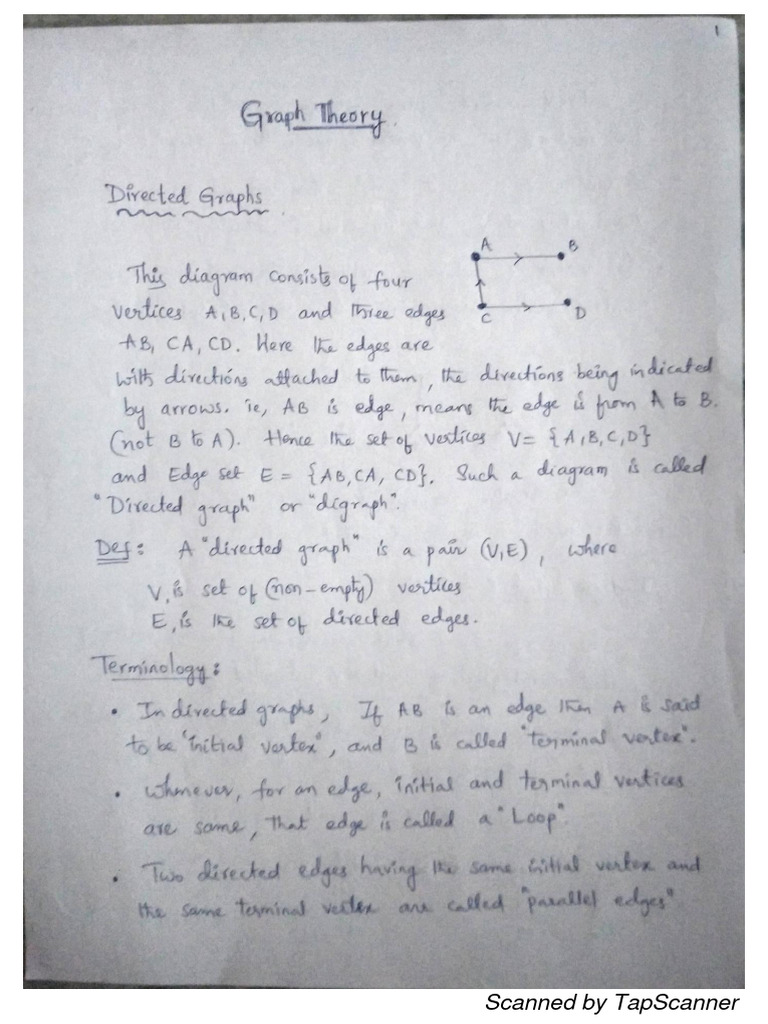 1
Graph Theory.
Directed Graphs
A B
This diagram consists of four
vertices A,B,C,D and three edges
C D
AB, CA, CD. Here the edges are
with directions attached to them, the directions being indicated
by arrows. ie, AB is edge, means the edge is from A to B.
(not B to A). Hence the set of vertices V= {A,B,C,D}
and Edge set E = {AB,CA, CD}. Such a diagram is called
"Directed graph" or "digraph".
Def: A "directed graph" is a pair (V,E), where
V, is set of (non-empty) vertices
E, is the set of directed edges.
Terminology:
• In directed graphs, If AB is an edge then A is said
to be "initial vertex", and B is called "terminal vertex".
• Whenever, for an edge, initial and terminal vertices
are same, that edge is called a "Loop".
• Two directed edges having the same initial vertex and
the same terminal vertex are called "parallel edges"
Scanned by TapScanner